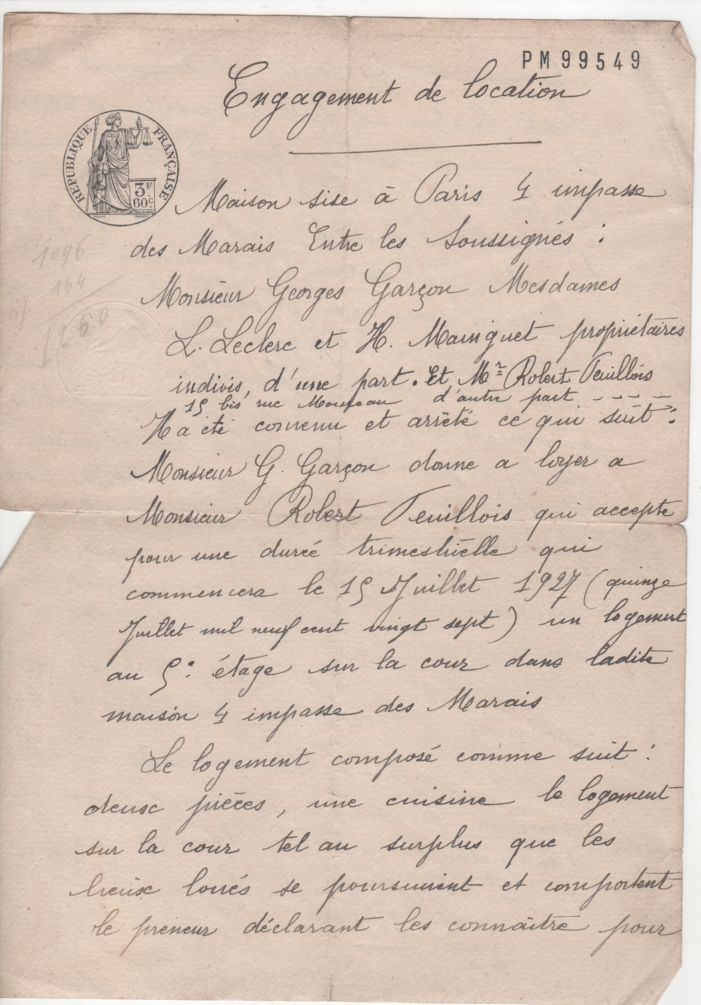 PM99549
Engagement de location
RÉPUBLIQUE FRANÇAISE
3F
60c
Maison sise à Paris 4 impasse
des Marais Entre les Soussignés :
1096
164
1260
Monsieur Georges Garçon Mesdames
L. Leclerc et H. Mainguet propriétaires
indivis, d'une part. Et Mr Robert Feuillois
15 bis rue d'autre part - - - -
Il a été convenu et arrêté ce qui suit :
Monsieur G. Garçon donne a loyer a
Monsieur Robert Feuillois qui accepte
pour une durée trimestrielle qui
commencera le 15 Juillet 1927 (quinze
Juillet mil neuf cent vingt sept) un logement
au 5e étage sur la cour dans ladite
maison 4 impasse des Marais
Le logement composé comme suit :
deux pièces, une cuisine le logement
sur la cour tel au surplus que les
lieux loués se poursuivent et comportent
le preneur déclarant les connaître pour